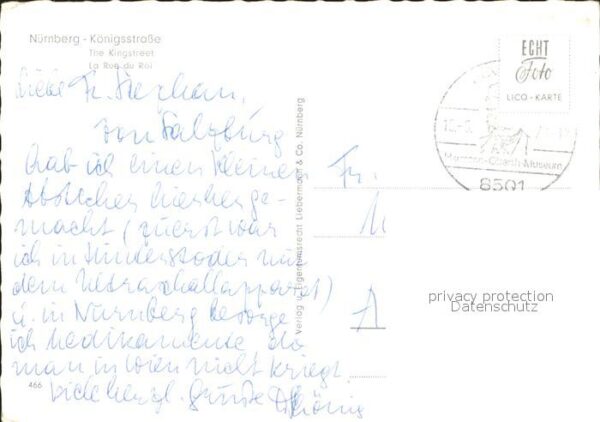 Nürnberg - Königsstraße
The Kingstreet
La Rue du Roi
Liebe Fr.
von Salzburg
hab ich einen kleinen
Abstecher hierher ge-
macht (zuerst war
ich in Hinterstoder mit
dem Ultraschallapparat)
u. in Nürnberg besorge
ich Medikamente die
man in Wien nicht kriegt
viele herzl. Grüße
466
Verlag u. Eigentumsrecht Liebermann & Co. Nürnberg
ECHT
Foto
LICO-KARTE
8501
Fr.
privacy protection
Datenschutz